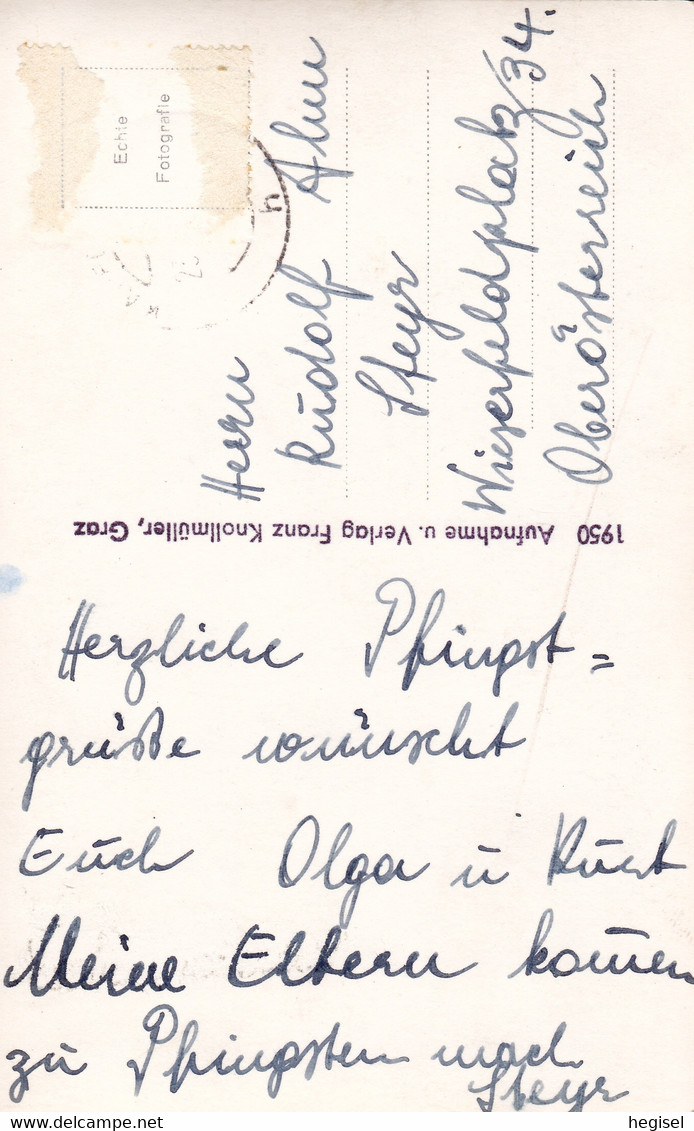 Echte
Fotografie
h
Herrn
Rudolf Alm
Steyr
Wieserfeldplatz 34.
Oberösterreich
1950 Aufnahme u. Verlag Franz Knollmüller, Graz
Herzliche Pfingst=
grüße wünscht
Euch Olga u Kurt
Meine Eltern kom̄en
zu Pfingsten nach
Steyr
hegisel
delcampe.net